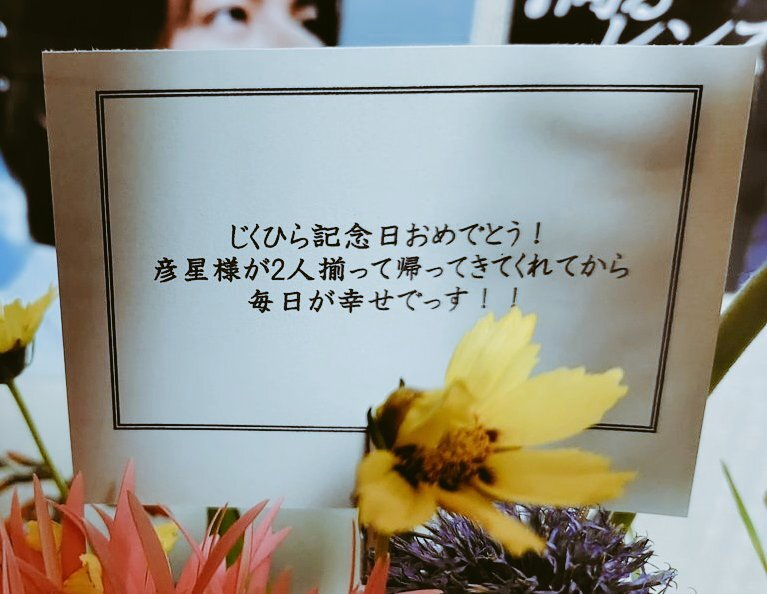 じくひら記念日おめでとう！
彦星様が2人揃って帰ってきてくれてから
毎日が幸せでっす！！